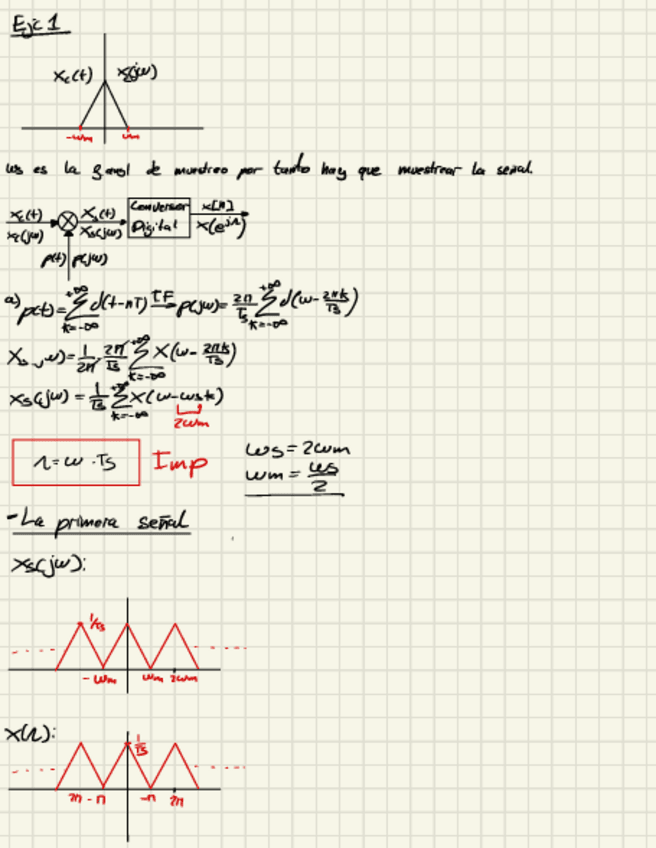 Eje 1
Xc(t) X(jω)
-ωm ωm
ωs es la señal de muestreo por tanto hay que muestrear la señal.
Xc(t) Xs(t) Conversor x[n]
Xc(jω) Xs(jω) Digital X(e^jΩ)
p(t) p(jω)
a) p(t)=∑_{k=-∞}^{+∞} δ(t-nT) TF→ p(jω)= 2π/Ts ∑_{k=-∞}^{+∞} δ(ω- 2πk/Ts)
Xs(jω)= 1/2π 2π/Ts ∑_{k=-∞}^{+∞} X(ω- 2πk/Ts)
Xs(jω)= 1/Ts ∑_{k=-∞}^{+∞} X(ω-ωsk)
2ωm
Ω=ω·Ts Imp
ωs=2ωm
ωm= ωs/2
-La primera señal
Xs(jω):
1/Ts
-ωm ωm 2ωm
X(Ω):
1/Ts
2π -π -π 2π